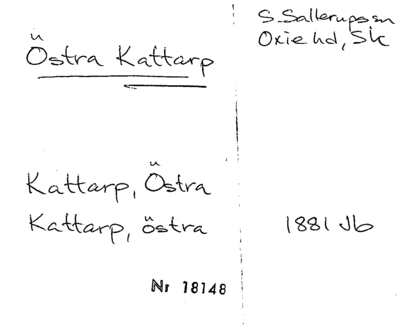 Östra Kattarp
S. Sallerups sn
Oxie hd, Sk
Kattarp, Östra
Kattarp, östra
1881 Jb
Nr 18148